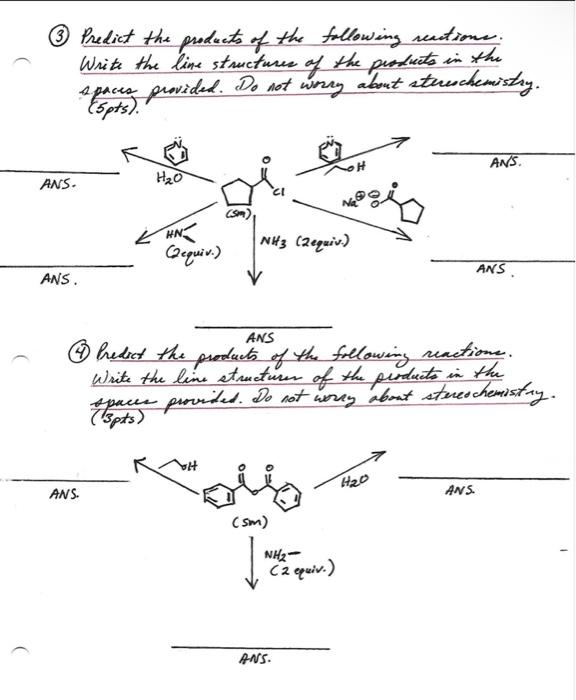 ③ Predict the products of the following reactions.
Write the line structures of the products in the
spaces provided. Do not worry about stereochemistry.
(5pts).
N
H2O
ANS.
N
OH
ANS.
O
Cl
(SM)
Na⊕ ⊖O
O
ANS.
HN
(2equiv.)
ANS.
NH3 (2equiv.)
ANS
④ Predict the products of the following reactions.
Write the line structures of the products in the
spaces provided. Do not worry about stereochemistry.
(3pts)
OH
ANS.
O O
O
(SM)
H2O
ANS.
NH2—
(2 equiv.)
ANS.